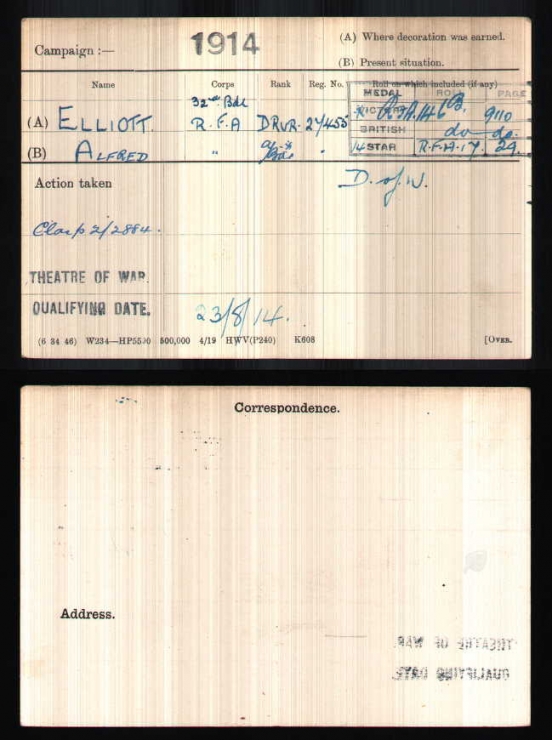 Campaign :—
1914
(A) Where decoration was earned.
(B) Present situation.
Name Corps Rank Reg. No. Roll on which included (if any)
MEDAL ROLL PAGE
32nd Bde
(A) ELLIOTT. R.F.A DRVR. 27455 VICTORY R.F.A. 146 B. 9110
BRITISH do do.
(B) ALFRED " " 14 STAR R.F.A. 17. 29.
Action taken
D. of W.
Clasp 2/2884.
THEATRE OF WAR.
QUALIFYING DATE. 23/8/14.
(6 34 46) W234—HP5590 500,000 4/19 HWV(P240) K608 [OVER.
Correspondence.
Address.
THEATRE OF WAR.
QUALIFYING DATE.